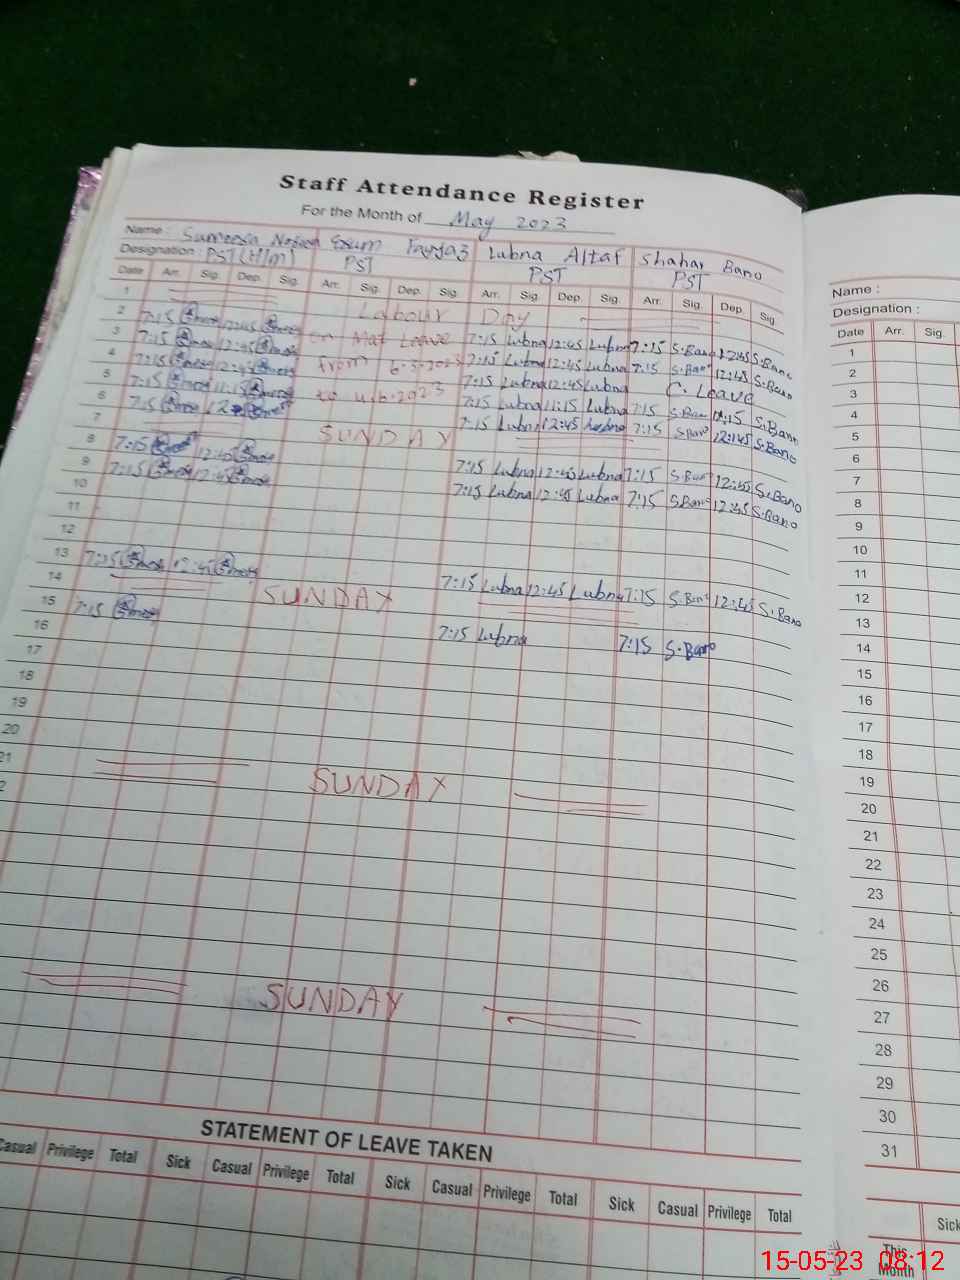 Staff Attendance Register
For the Month of May 2023
Name : Esum Fayyaz Lubna Altaf Shahar Bano
Designation : PST(H/m) PST PST PST
Date Arr. Sig. Dep. Sig. Arr. Sig. Dep. Sig. Arr. Sig. Dep. Sig. Arr. Sig. Dep. Sig.
1 Labour Day
2 7:15 12:45 on Mat Leave 7:15 Lubna 12:45 Lubna 7:15 S.Bano 12:45 S.Bano
3 7:15 12:45 from 6-3-2023 7:15 Lubna 12:45 Lubna 7:15 S.Bano 12:45 S.Bano
4 7:15 12:45 to 2023 7:15 Lubna 12:45 Lubna C. Leave
5 7:15 11:15 7:15 Lubna 11:15 Lubna 7:15 S.Bano 11:15 S.Bano
6 7:15 7:15 Lubna 12:45 Lubna 7:15 S.Bano 12:45 S.Bano
7 SUNDAY
8 7:15 12:45 7:15 Lubna 12:45 Lubna 7:15 S.Bano 12:45 S.Bano
9 7:15 12:45 7:15 Lubna 12:45 Lubna 7:15 S.Bano 12:45 S.Bano
10
11
12
13 7:15 12:45 7:15 Lubna 12:45 Lubna 7:15 S.Bano 12:45 S.Bano
14 SUNDAY
15 7:15 7:15 Lubna 7:15 S.Bano
16
17
18
19
20
21 SUNDAY
2
SUNDAY
STATEMENT OF LEAVE TAKEN
Casual Privilege Total Sick Casual Privilege Total Sick Casual Privilege Total Sick Casual Privilege Total
Name :
Designation :
Date Arr. Sig.
1
2
3
4
5
6
7
8
9
10
11
12
13
14
15
16
17
18
19
20
21
22
23
24
25
26
27
28
29
30
31
Sick
This Month
15-05-23 08:12